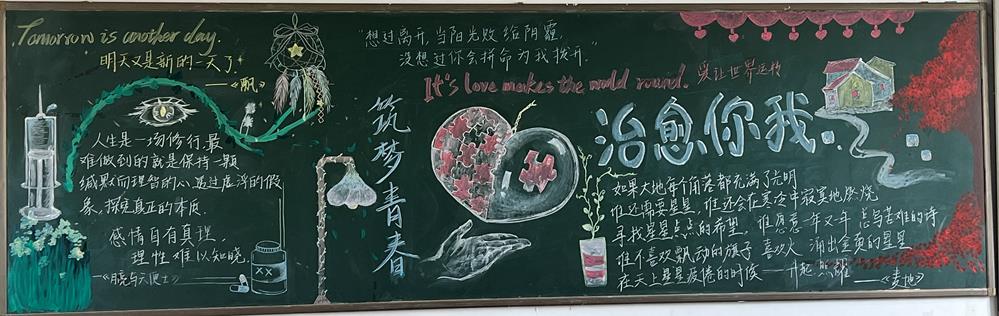 Tomorrow is another day.
明天又是新的一天了
——《飘》
人生是一场修行,最
难做到的就是保持一颗
缄默而理智的心,透过虚浮的假
象,探究真正的本质.
感情自有真理,
理性难以知晓.
——《月亮与六便士》
XX
筑梦青春
"想过离开,当阳光败给阴霾,
没想过你会拼命为我拨开"
It's love makes the world round.
爱让世界运转
治愈你我.
如果大地每个角落都充满了光明
谁还需要星星,谁还会在寒夜中寂寞地燃烧
寻找星星点点的希望,谁愿意一年又一年 总写苦难的诗
谁不喜欢飘动的旗子 喜欢火 涌出金黄的星星
在天上星星疲倦的时候——升起 照耀
——《麦地》